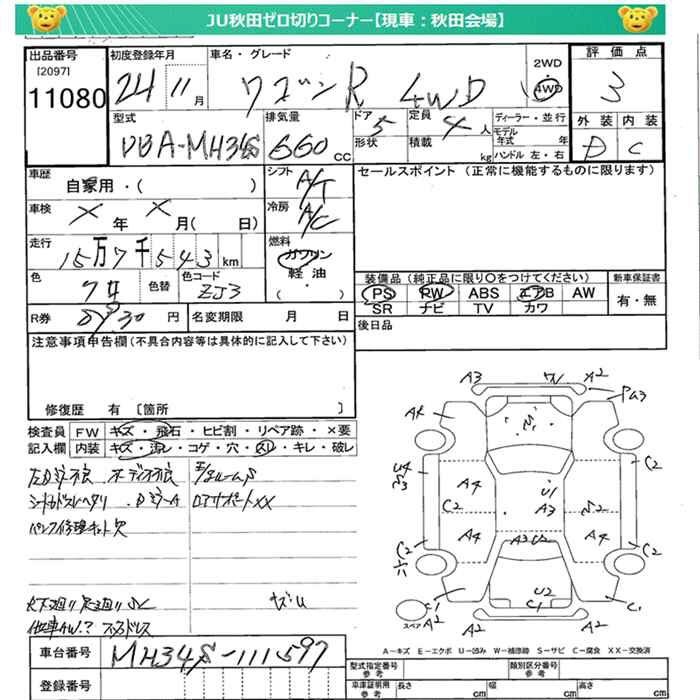 JU秋田ゼロ切りコーナー【現車：秋田会場】
出品番号
[2097]
11080
初度登録年月
24 11 月
車名・グレード
ワゴンR 4WD
2WD
4WD
評価点
3
外装 内装
D C
型式
DBA-MH34S
排気量
660 cc
ドア 5
形状
定員 4 人
積載 kg
ディーラー・並行
モデル年式 年
ハンドル 左・右
車歴
自家用・( )
シフト A/T
セールスポイント (正常に機能するものに限ります)
車検
X 年 X 月( 日)
冷房 A/C
走行
15万7千543 km
燃料
ガソリン
軽油
( )
色 色替
色コード ZJ3
装備品 (純正品に限り○をつけてください)
PS RW ABS エアB AW
SR ナビ TV カワ
新車保証書
有・無
R券 円
名変期限 月 日
後日品
注意事項申告欄(不具合内容等は具体的に記入して下さい)
修復歴 有 [箇所 ]
検査員 FW キズ・飛石・ヒビ割・リペア跡・×要
記入欄 内装 キズ・汚レ・コゲ・穴・スレ・キレ・破レ
パンク修理キット欠
A3 A2
A4
U4
S3
C2
A4
C2
U1
A3
S2
C2
A4
A3 U2
A4
C2
C2
C1
U2
C1
C1
スペア
A2 A2
A－キズ E－エクボ U－凹み W－補修跡 S－サビ C－腐食 XX－交換済
車台番号 MH34S-111597
登録番号
型式指定番号 参考
類別区分番号 参考
車庫証明用 参考
長さ cm
幅 cm
高さ cm